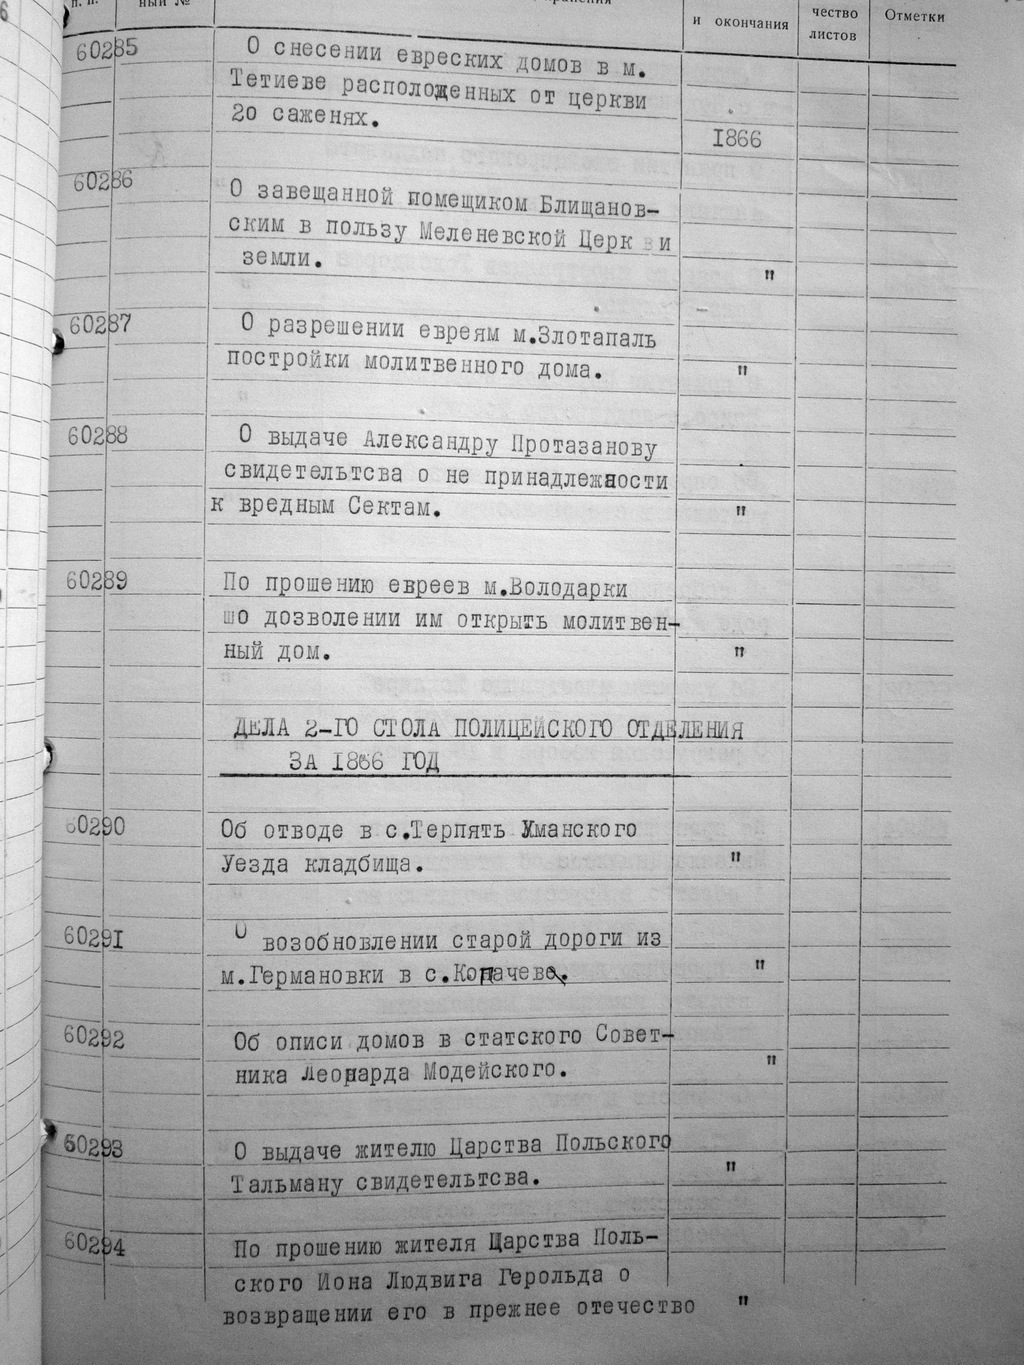 п. п.
ный №
и окончания
чество
листов
Отметки
60285
О снесении евреских домов в м.
Тетиеве расположенных от церкви
20 саженях.
1866
60286
О завещанной помещиком Блищанов-
ским в пользу Меленевской Церкви
земли.
"
60287
О разрешении евреям м.Злотапаль
постройки молитвенного дома.
"
60288
О выдаче Александру Протазанову
свидетельтсва о не принадлежности
к вредным Сектам.
"
60289
По прошению евреев м.Володарки
шо дозволении им открыть молитвен-
ный дом.
"
ДЕЛА 2-ГО СТОЛА ПОЛИЦЕЙСКОГО ОТДЕЛЕНИЯ
ЗА 1866 ГОД
60290
Об отводе в с.Терпять Уманского
Уезда кладбища.
"
60291
О возобновлении старой дороги из
м.Германовки в с.Копачеве.
"
60292
Об описи домов в статского Совет-
ника Леонарда Модейского.
"
60293
О выдаче жителю Царства Польского
Тальману свидетельтсва.
"
60294
По прошению жителя Царства Поль-
ского Иона Людвига Герольда о
возвращении его в прежнее отечество
"